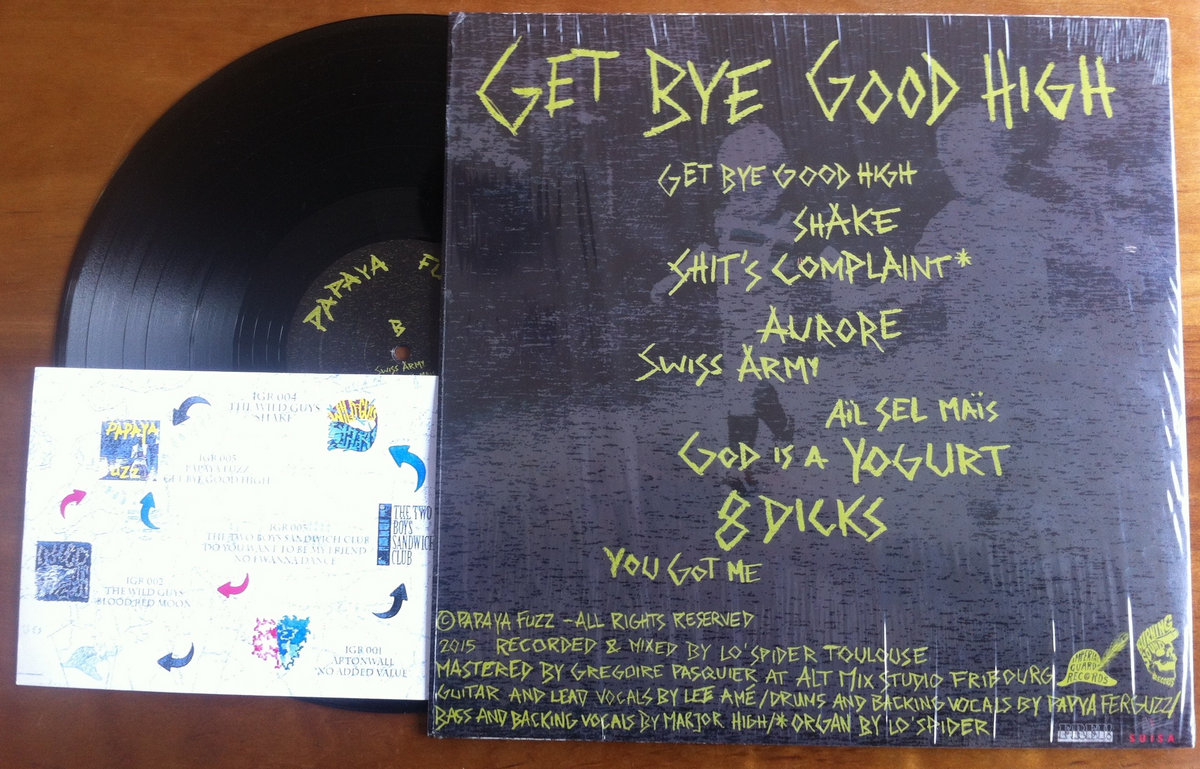 GET BYE GOOD HIGH
GET BYE GOOD HIGH
SHAKE
SHIT'S COMPLAINT*
AURORE
SWISS ARMY
AÏL SEL MAÏS
GOD IS A YOGURT
8 DICKS
YOU GOT ME
©PAPAYA FUZZ - ALL RIGHTS RESERVED
2015 RECORDED & MIXED BY LO'SPIDER TOULOUSE
MASTERED BY GREGOIRE PASQUIER AT ALT MIX STUDIO FRIBOURG
GUITAR AND LEAD VOCALS BY LEE AMÉ/DRUMS AND BACKING VOCALS BY PAPYA FERGUZZ/
BASS AND BACKING VOCALS BY MARJOR HIGH/* ORGAN BY LO'SPIDER
GUARD
RECORDS
RECORDS
SUISA
PAPAYA FU
B
SWISS ARMY
IGR 004
THE WILD GUYS
SHAKE
PAPAYA
FUZZ
PAPAYA FUZZ
GET BYE GOOD HIGH
THE TWO
BOYS
SANDWICH
CLUB
THE TWO BOYS SANDWICH CLUB
DO YOU WANT TO BE MY FRIEND
NO I WANNA DANCE
IGR 002
THE WILD GUYS
BLOOD RED MOON
IGR 001
AFTONWALL
NO ADDED VALUE